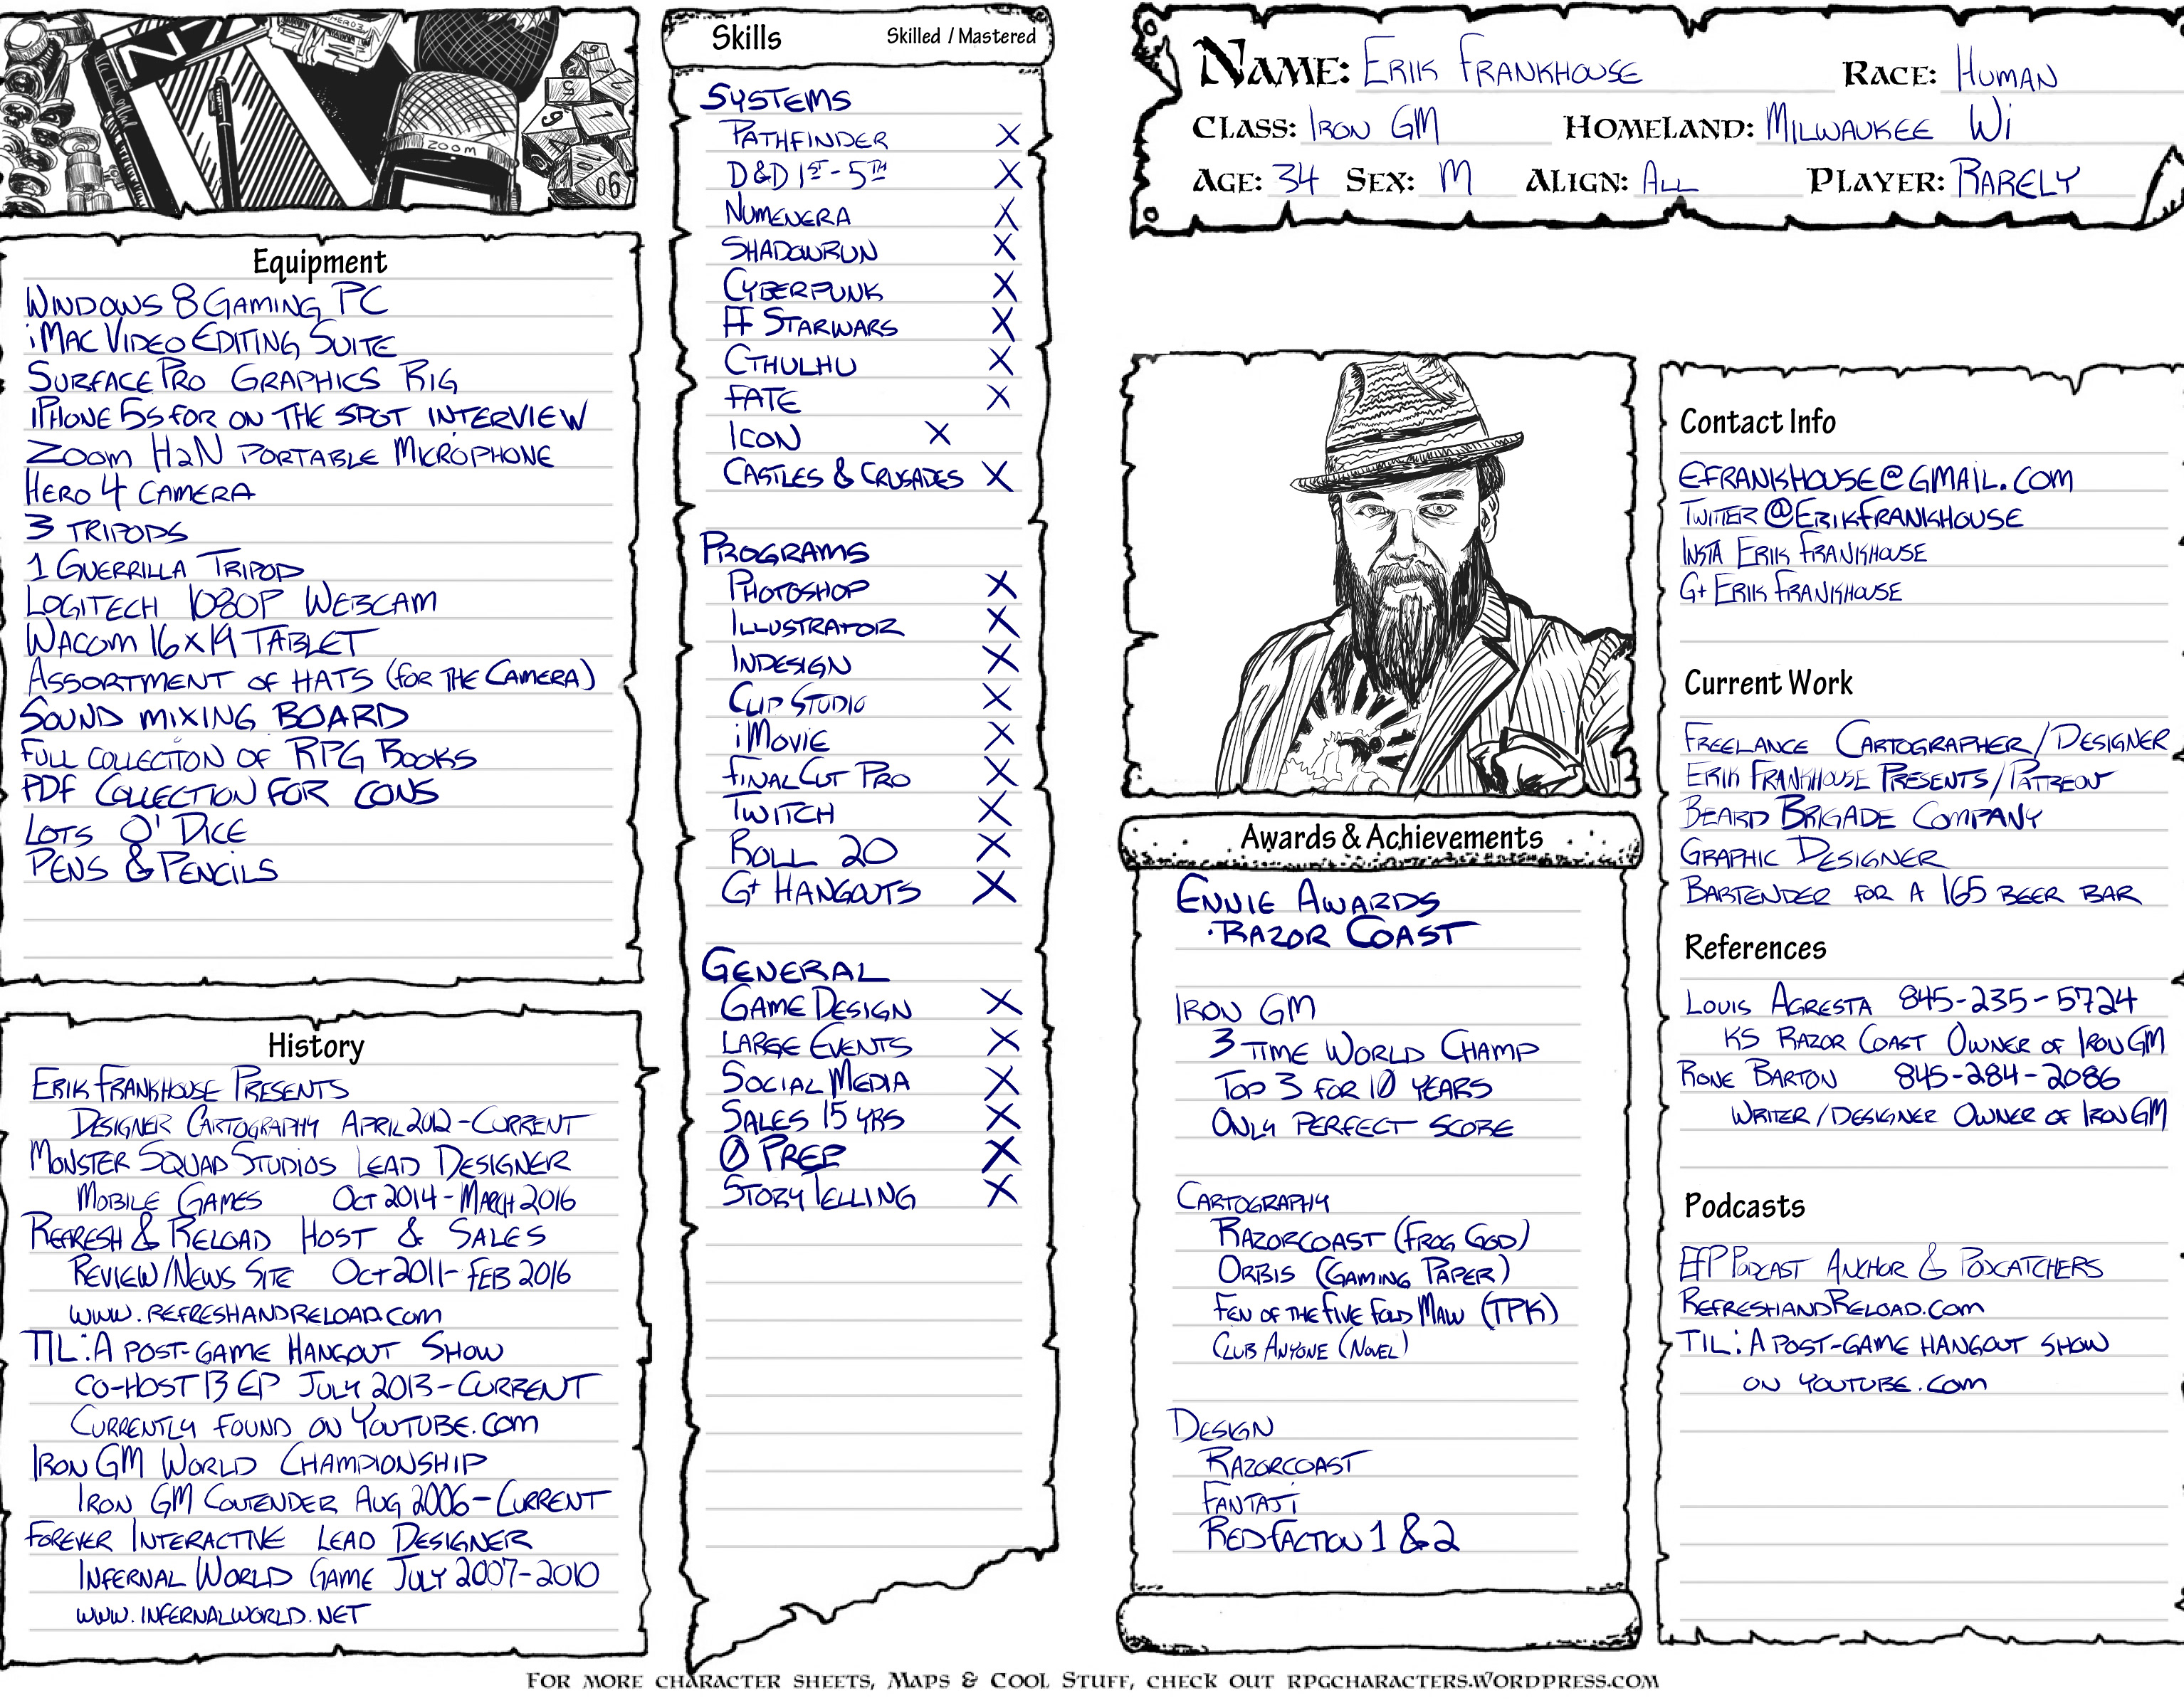 HERO3
N
ZOOM
Equipment
Windows 8 Gaming PC
iMac Video Editing Suite
Surface Pro Graphics Rig
iPhone 5s for on the spot interview
Zoom H2N portable Microphone
Hero 4 camera
3 tripods
1 Guerrilla Tripod
Logitech 1080p Webcam
Wacom 16x19 Tablet
Assortment of hats (for the Camera)
Sound mixing board
Full collection of RPG Books
PDF Collection for cons
Lots O' Dice
Pens & Pencils
History
Erik Frankhouse Presents
Designer Cartography April 2012 - Current
Monster Squad Studios Lead Designer
Mobile Games Oct 2014 - March 2016
Refresh & Reload Host & Sales
Review/News Site Oct 2011 - Feb 2016
www.refreshandreload.com
TIL: A post-game Hangout Show
Co-host 13 Ep July 2013 - Current
Currently found on Youtube.com
Iron GM World Championship
Iron GM Contender Aug 2006 - Current
Forever Interactive Lead Designer
Infernal World Game July 2007-2010
www.infernalworld.net
Skills Skilled / Mastered
Systems
Pathfinder X
D&D 1st - 5th X
Numenera X
Shadowrun X
Cyberpunk X
FF Starwars X
Cthulhu X
Fate X
Icon X
Castles & Crusades X
Programs
Photoshop X
Illustrator X
Indesign X
Clip Studio X
iMovie X
Final Cut Pro X
Twitch X
Roll 20 X
G+ Hangouts X
General
Game Design X
Large Events X
Social Media X
Sales 15 yrs X
0 Prep X
Story Telling X
Name: Erik Frankhouse Race: Human
Class: Iron GM Homeland: Milwaukee Wi
Age: 34 Sex: M Align: All Player: Rarely
Awards & Achievements
Ennie Awards
· Razor Coast
Iron GM
3 time World Champ
Top 3 for 10 years
Only perfect score
Cartography
Razorcoast (Frog God)
Orbis (Gaming Paper)
Fen of the Five Fold Maw (TPK)
Club Anyone (Novel)
Design
Razorcoast
Fantaji
Red Faction 1 & 2
Contact Info
efrankhouse@gmail.com
Twitter @ErikFrankhouse
Insta Erik Frankhouse
G+ Erik Frankhouse
Current Work
Freelance Cartographer/Designer
Erik Frankhouse Presents/Patreon
Beard Brigade Company
Graphic Designer
Bartender for a 165 beer bar
References
Louis Agresta 845-235-5724
KS Razor Coast Owner of Iron GM
Rone Barton 845-284-2086
Writer/Designer Owner of Iron GM
Podcasts
EFP Podcast Anchor & Podcatchers
RefreshandReload.com
TIL: A post-game hangout show
on youtube.com
For more character sheets, Maps & Cool Stuff, check out rpgcharacters.wordpress.com